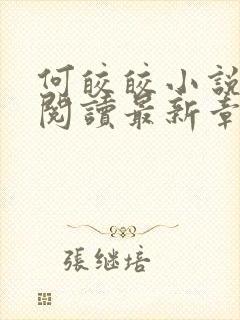 何皎皎小說
閱讀最新章
張继培